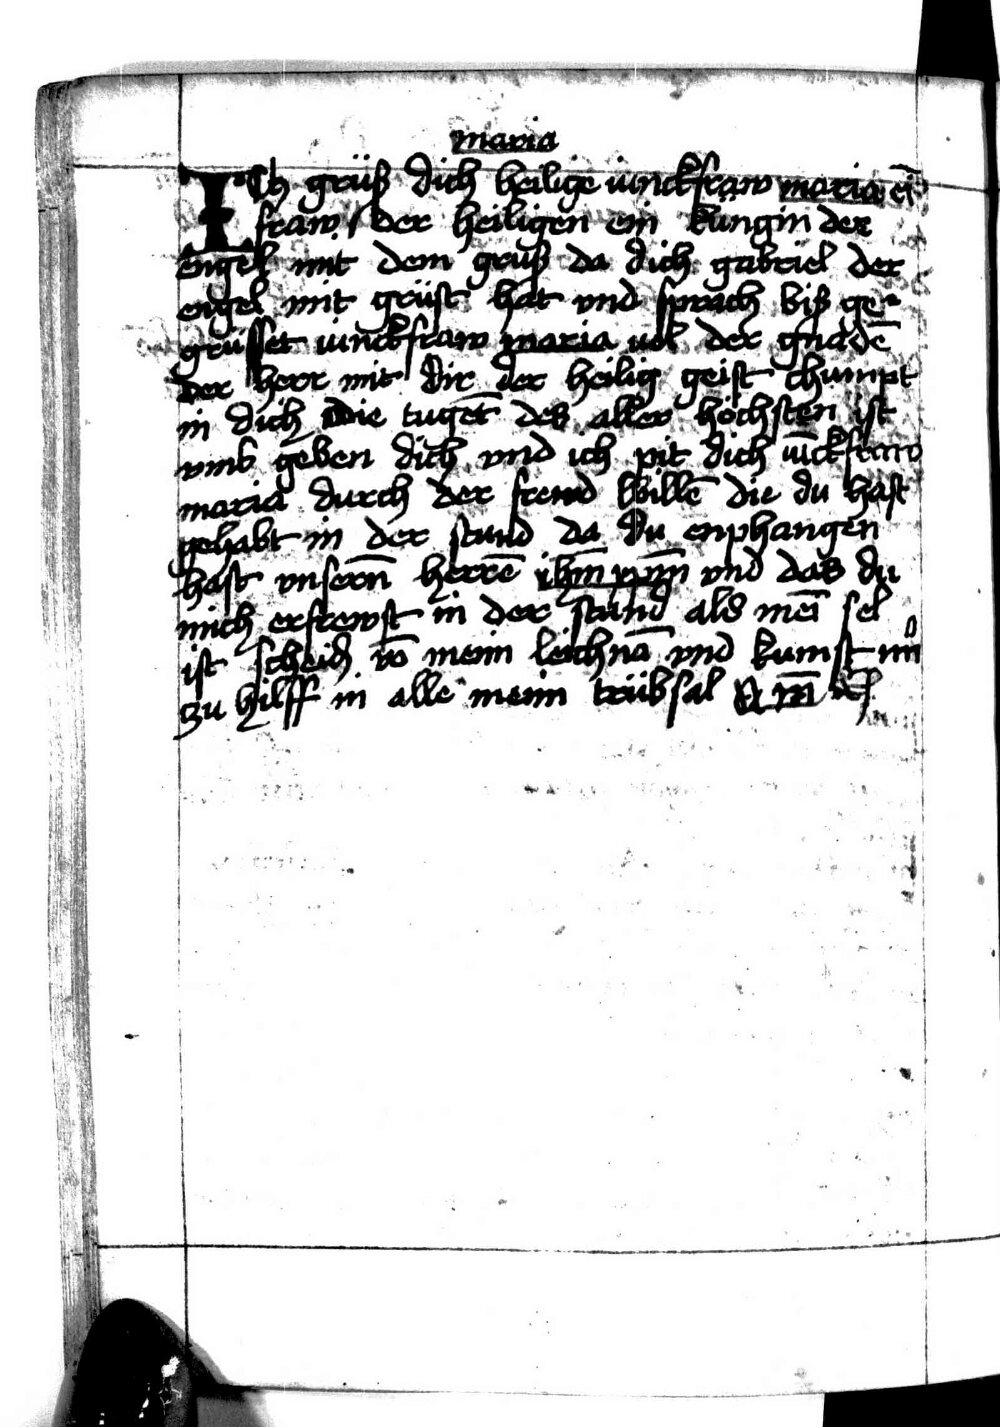 maria
ICh grüß dich heilige iunckfraw maria eī
fraw / der heiligen ein küngin der
engel mit dem gruß da dich gabriel der
engel mit grüst hat vnd sprach biß ge-
grüsset iunckfraw maria vol der gnadē
der herr mit dir der heilig geist chumpt
in dich die tugēt des aller höchsten ist
vmb geben dich vnd ich pit dich iūckfraw
maria durch der frewd willē die du hast
gehabt in der stund da du enphangen
hast vnserñ herrē ihm̄ xpm̄ vnd das du
mich erfrewst in der stund als meī sel
ist scheid vō meim leichnā vnd kumst mir
zu hilff in alle meim trübsal